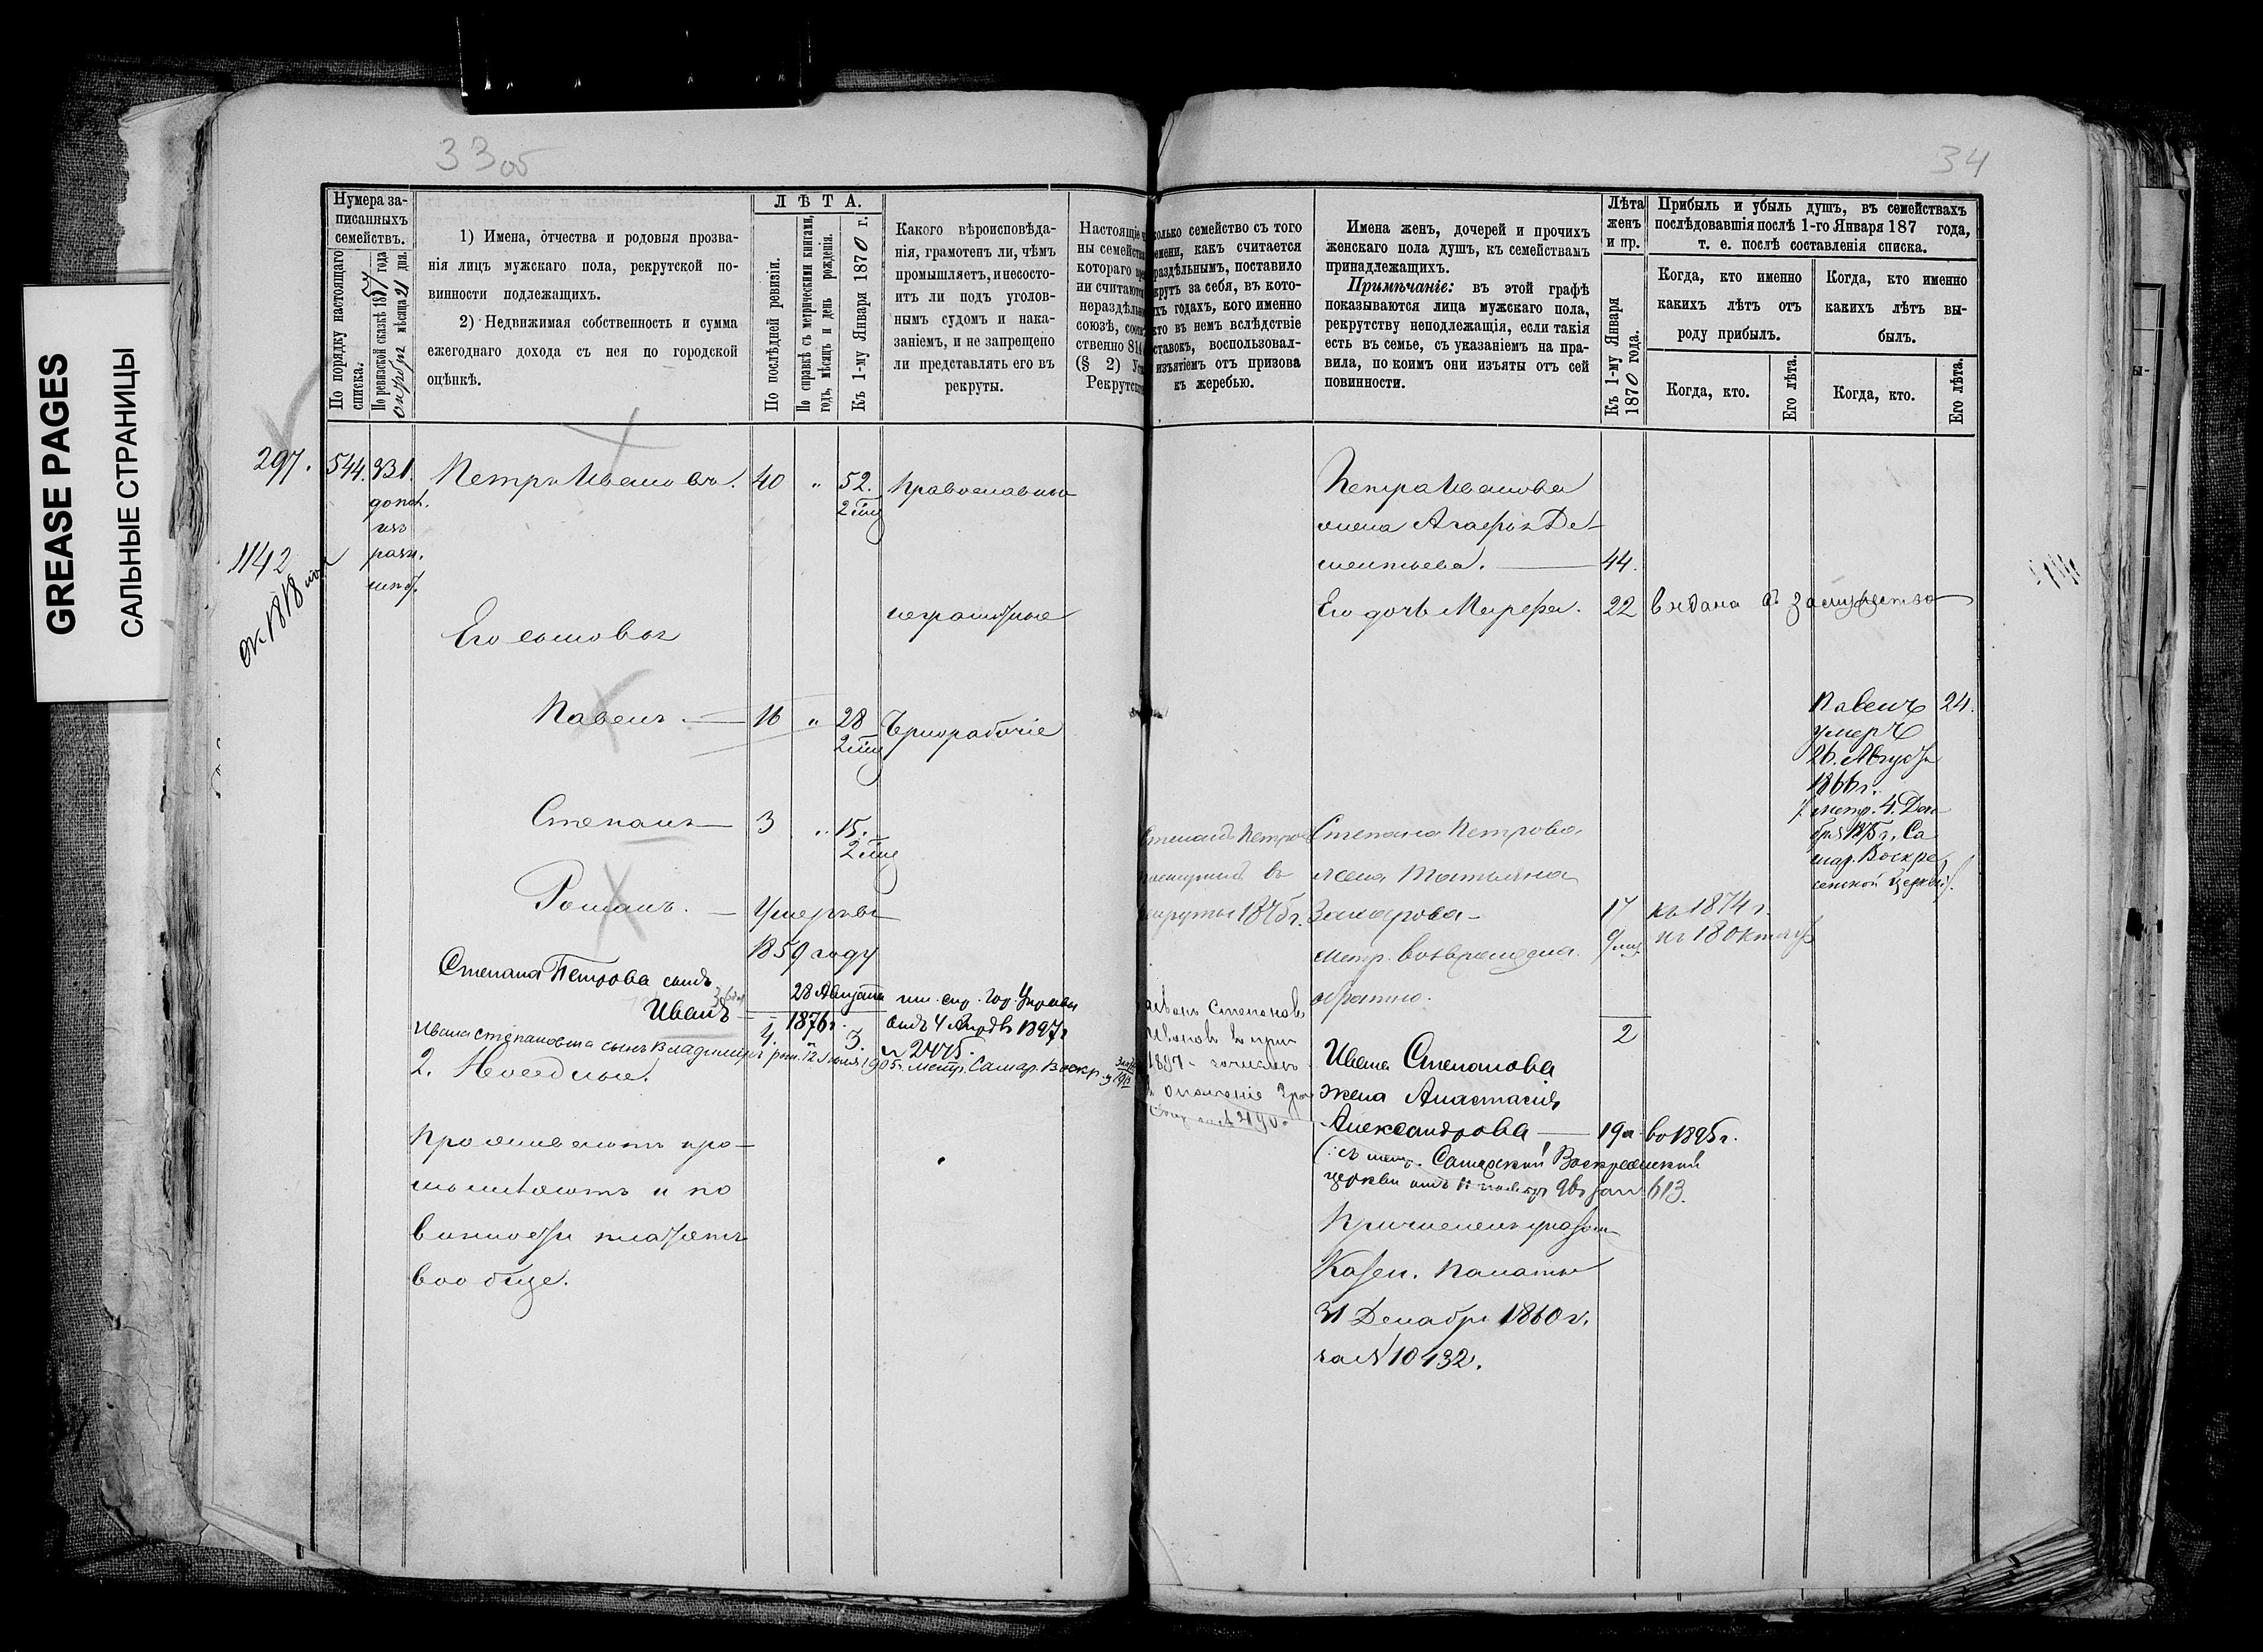 GREASE PAGES
САЛЬНЫЕ СТРАНИЦЫ
33об
Нумера за-
писанныхъ
семействъ.
По порядку настоящаго
списка.
По ревизской сказкѣ 1857 года
октября мѣсяца 21 дна.
1) Имена, отчества и родовыя прозва-
нія лицъ мужскаго пола, рекрутской по-
винности подлежащихъ.
2) Недвижимая собственность и сумма
ежегоднаго дохода съ нея по городской
оцѣнкѣ.
ЛѢТА.
По послѣдней ревизіи.
По справкѣ съ метрическими книгами,
годъ, мѣсяцъ и день рожденія.
Къ 1-му Января 1870 г.
Какого вѣроисповѣда-
нія, грамотенъ ли, чѣмъ
промышляетъ, и несосто-
итъ ли подъ уголов-
нымъ судомъ и нака-
заніемъ, и не запрещено
ли представлять его въ
рекруты.
Настоящіе
ны семейства
котораго
ни считаются
нераздѣльн
союзѣ, соот
ственно 814
(§ 2) Уст
Рекрутск
297.
544.
931.
Петръ Ивановъ.
40
"
52.
Православные
1142
Его сыновья
неграмотные
Павелъ.
16
"
28
Чернорабочіе
Степанъ
3
"
15.
Романъ.
Умеръ въ
1859 году
Степана Петрова сынъ
Иванъ
28 Августа
1876 г.
3.
отъ 4 Апрѣ 1897 г
№ 2445.
Ивана Степановича сынъ Владиміръ род. 12 Іюля 1905 г. метр. Самар. Воскр.
2. Неимѣніе.
Проживаютъ про-
мышляютъ и по
винности платятъ
вообще.
34
колько семейство съ того
емени, какъ считается
раздѣльнымъ, поставило
крутъ за себя, въ кото-
хъ годахъ, кого именно
кто въ немъ вслѣдствіе
ставокъ, воспользовал-
изъятіемъ отъ призова
къ жеребью.
Имена женъ, дочерей и прочихъ
женскаго пола душъ, къ семействамъ
принадлежащихъ.
Примѣчаніе: въ этой графѣ
показываются лица мужскаго пола,
рекрутству неподлежащія, если такія
есть въ семье, съ указаніемъ на пра-
вила, по коимъ они изъяты отъ сей
повинности.
Лѣта
женъ
и пр.
Къ 1-му Января
1870 года.
Прибыль и убыль душъ, въ семействахъ
послѣдовавшія послѣ 1-го Января 187 года,
т. е. послѣ составленія списка.
Когда, кто именно
какихъ лѣтъ отъ
роду прибылъ.
Когда, кто.
Его лѣта.
Когда, кто именно
какихъ лѣтъ вы-
былъ.
Когда, кто.
Его лѣта.
Петра Иванова
жена Агафія Де-
ментьева.
44.
Его дочь Марфа.
22
выдана въ замужество
Павелъ
24.
умеръ
26. Августа
1866 г.
метр. 4. Дека
бря 1875 г. Са
мар. Воскре
сенской церкви.
Степанъ Петров
поступилъ въ
рекруты 1875 г.
Степана Петрова
жена Татьяна
Захарова
17
къ 1874 г.
метр. возвращена
обратно.
2
Иванъ Степановъ
Ивановъ въ при
1897 зачисленъ
въ ополченіе
Ивана Степанова
жена Анастасія
Александрова
19 л
въ 1895 г.
(съ метр. Самарской Воскресенской
церкви
613.
Причислен указом
Казен. Палаты
31 Декабря 1860 г.
за № 10432.